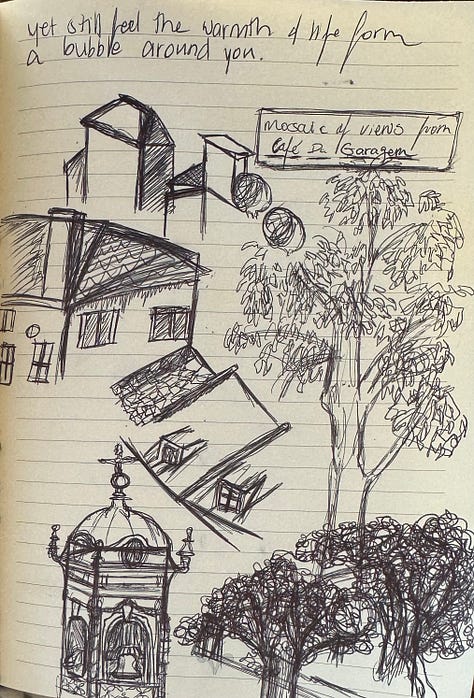 yet still feel the warmth of life form
a bubble around you.
Mosaic of views from
Café Da Garagem